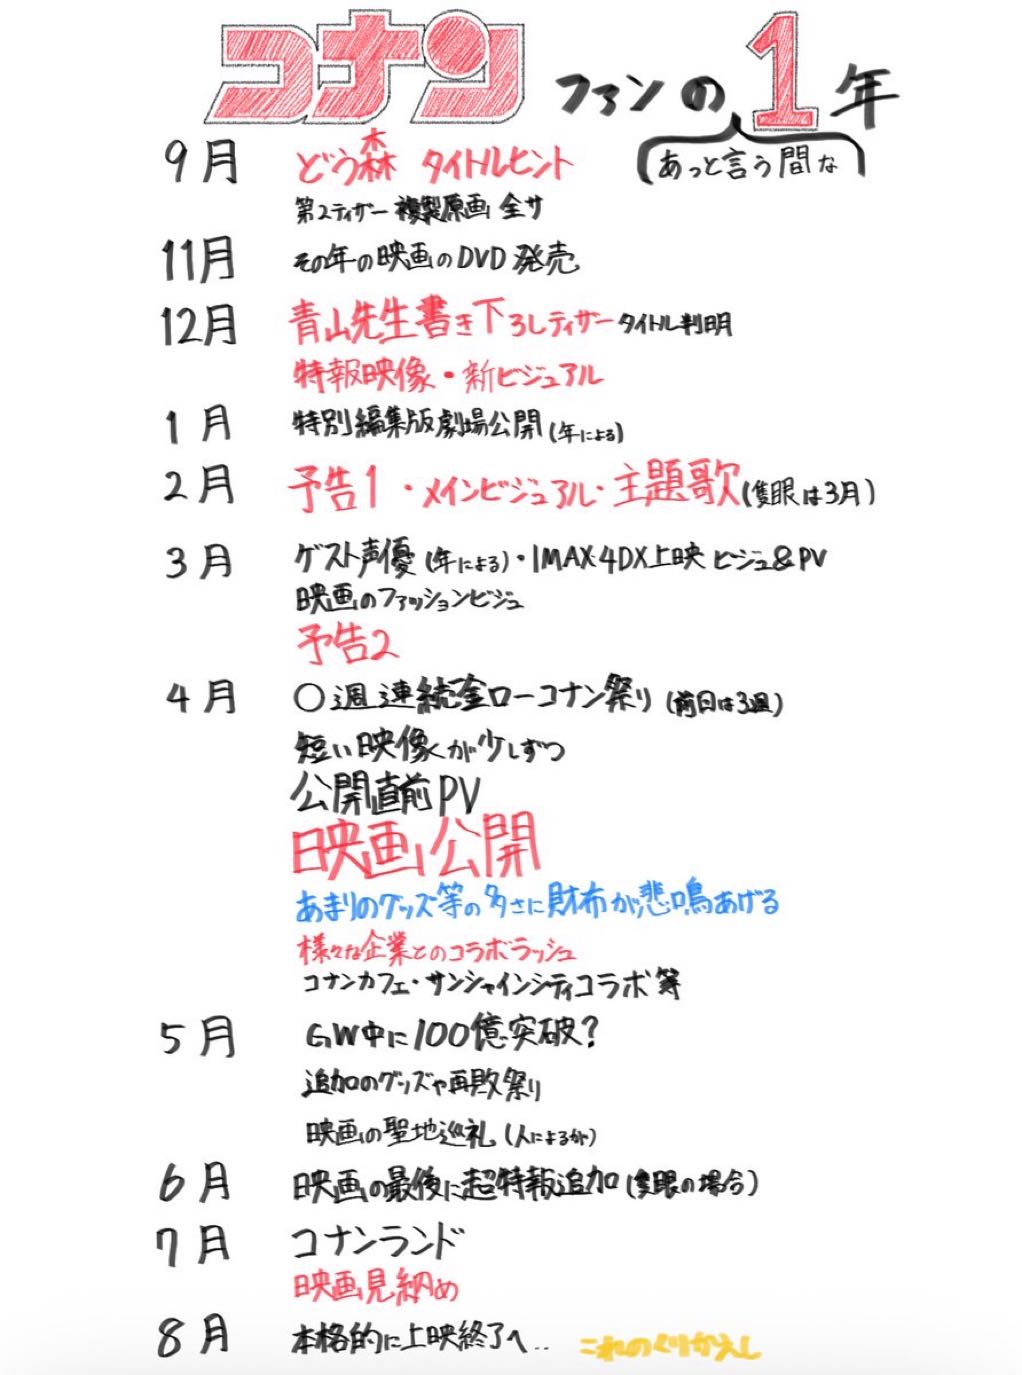 コナンファンの1年
(あっと言う間な)
9月 どう森 タイトルヒント
第2ティザー 複製原画 全サ
11月 その年の映画のDVD発売
12月 青山先生書き下ろしティザー タイトル判明
特報映像・新ビジュアル
1月 特別編集版劇場公開(年による)
2月 予告1・メインビジュアル・主題歌(隻眼は3月)
3月 ゲスト声優(年による)・IMAX・4DX上映 ビジュ&PV
映画のファッションビジュ
予告2
4月 〇週連続金ローコナン祭り(前回は3週)
短い映像が少しずつ
公開直前PV
映画公開
あまりのグッズ等の多さに財布が悲鳴あげる
様々な企業とのコラボラッシュ
コナンカフェ・サンシャインシティコラボ等
5月 GW中に100億突破?
追加のグッズや再販祭り
映画の聖地巡礼(人によるが)
6月 映画の最後に超特報追加(隻眼の場合)
7月 コナンランド
映画見納め
8月 本格的に上映終了へ... これのくりかえし